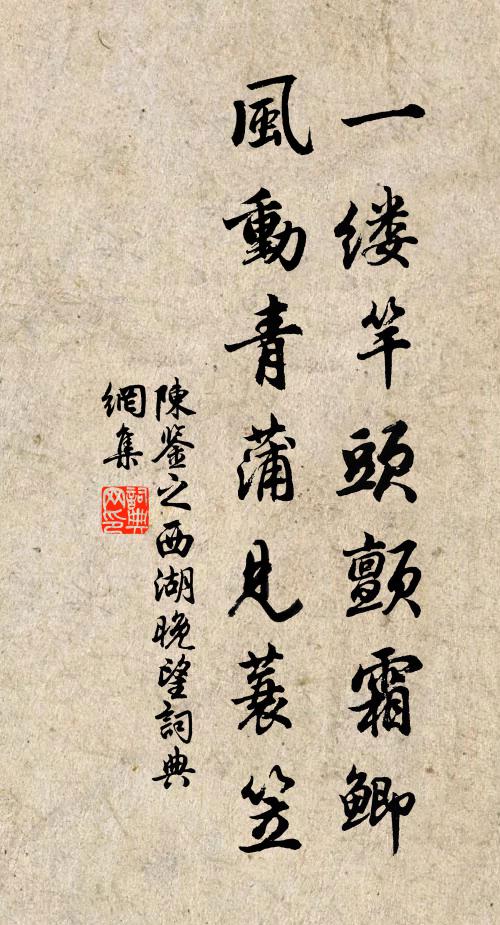 一缕竿頭顫霜鯽
風動青蒲見蓑笠
陳鉴之西湖晚望詞典
網集
詞典
网印